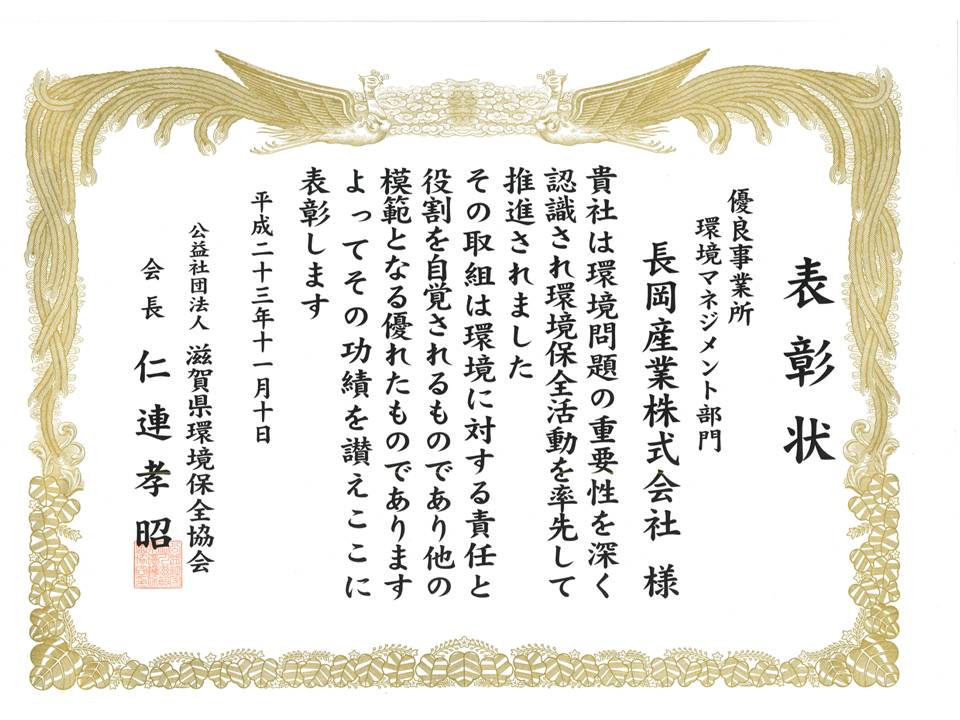 表彰状
優良事業所
環境マネジメント部門
長岡産業株式会社 様
貴社は環境問題の重要性を深く
認識され環境保全活動を率先して
推進されました
その取組は環境に対する責任と
役割を自覚されるものであり他の
模範となる優れたものであります
よってその功績を讃えここに
表彰します
平成二十三年十一月十日
公益社団法人 滋賀県環境保全協会
会長 仁連孝昭